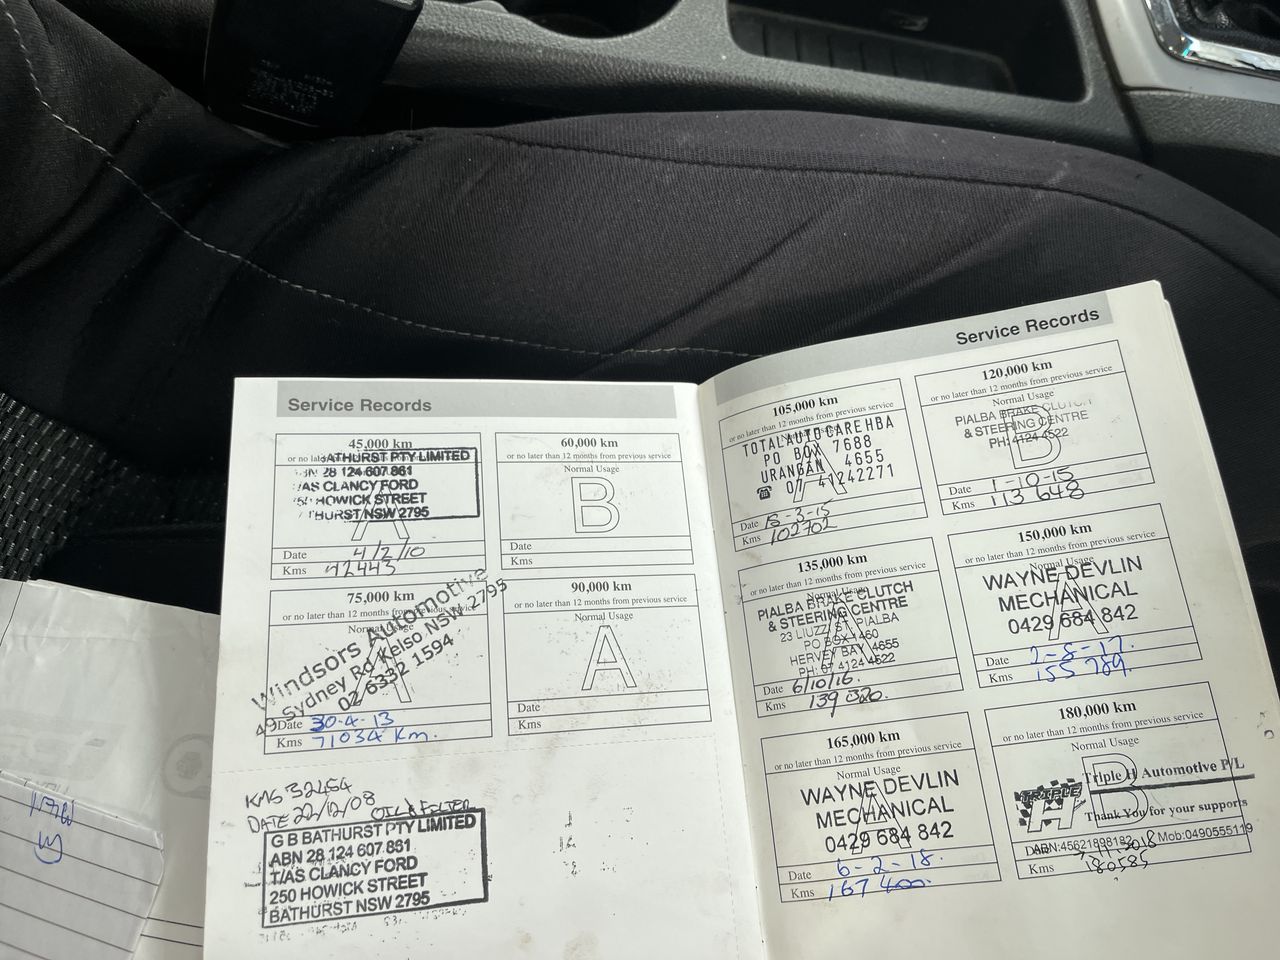 Service Records
45,000 km
BATHURST PTY LIMITED
ABN 28 124 607 861
T/AS CLANCY FORD
HOWICK STREET
THURST NSW 2795
A
Date 4/2/10
Kms 42443
60,000 km
or no later than 12 months from previous service
Normal Usage
B
Date
Kms
75,000 km
or no later than 12 months from previous service
Normal Usage
A
Windsors Automotive
49 Sydney Rd Kelso NSW 2795
02 6332 1594
Date 30-4-13
Kms 71034 Km.
90,000 km
or no later than 12 months from previous service
Normal Usage
A
Date
Kms
KMS 32454
DATE 22/12/08 OIL & FILTER
G B BATHURST PTY LIMITED
ABN 28 124 607 861
T/AS CLANCY FORD
250 HOWICK STREET
BATHURST NSW 2795
Service Records
105,000 km
or no later than 12 months from previous service
TOTAL AUTO CARE HBA
PO BOX 7688
URANGAN 4655
☎ 07 41242271
A
Date 15-3-15
Kms 102702
120,000 km
or no later than 12 months from previous service
Normal Usage
PIALBA BRAKE CLUTCH
& STEERING CENTRE
PH: 4124 4522
B
Date 1-10-15
Kms 113 648
135,000 km
or no later than 12 months from previous service
Normal Usage
PIALBA BRAKE CLUTCH
& STEERING CENTRE
PIALBA
PO BOX 460
HERVEY BAY 4655
PH: 07 4124 4522
A
Date 6/10/16
Kms 139 020
150,000 km
or no later than 12 months from previous service
Normal Usage
WAYNE DEVLIN
MECHANICAL
0429 684 842
A
Date 2-8-17.
Kms 155 789.
165,000 km
or no later than 12 months from previous service
Normal Usage
WAYNE DEVLIN
MECHANICAL
0429 684 842
A
Date 6-2-18.
Kms 167 400
180,000 km
or no later than 12 months from previous service
Normal Usage
B
TRIPLE H
Triple H Automotive P/L
Thank You for your supports
ABN:45621898182 Mob:0490555119
Date
Kms 180585